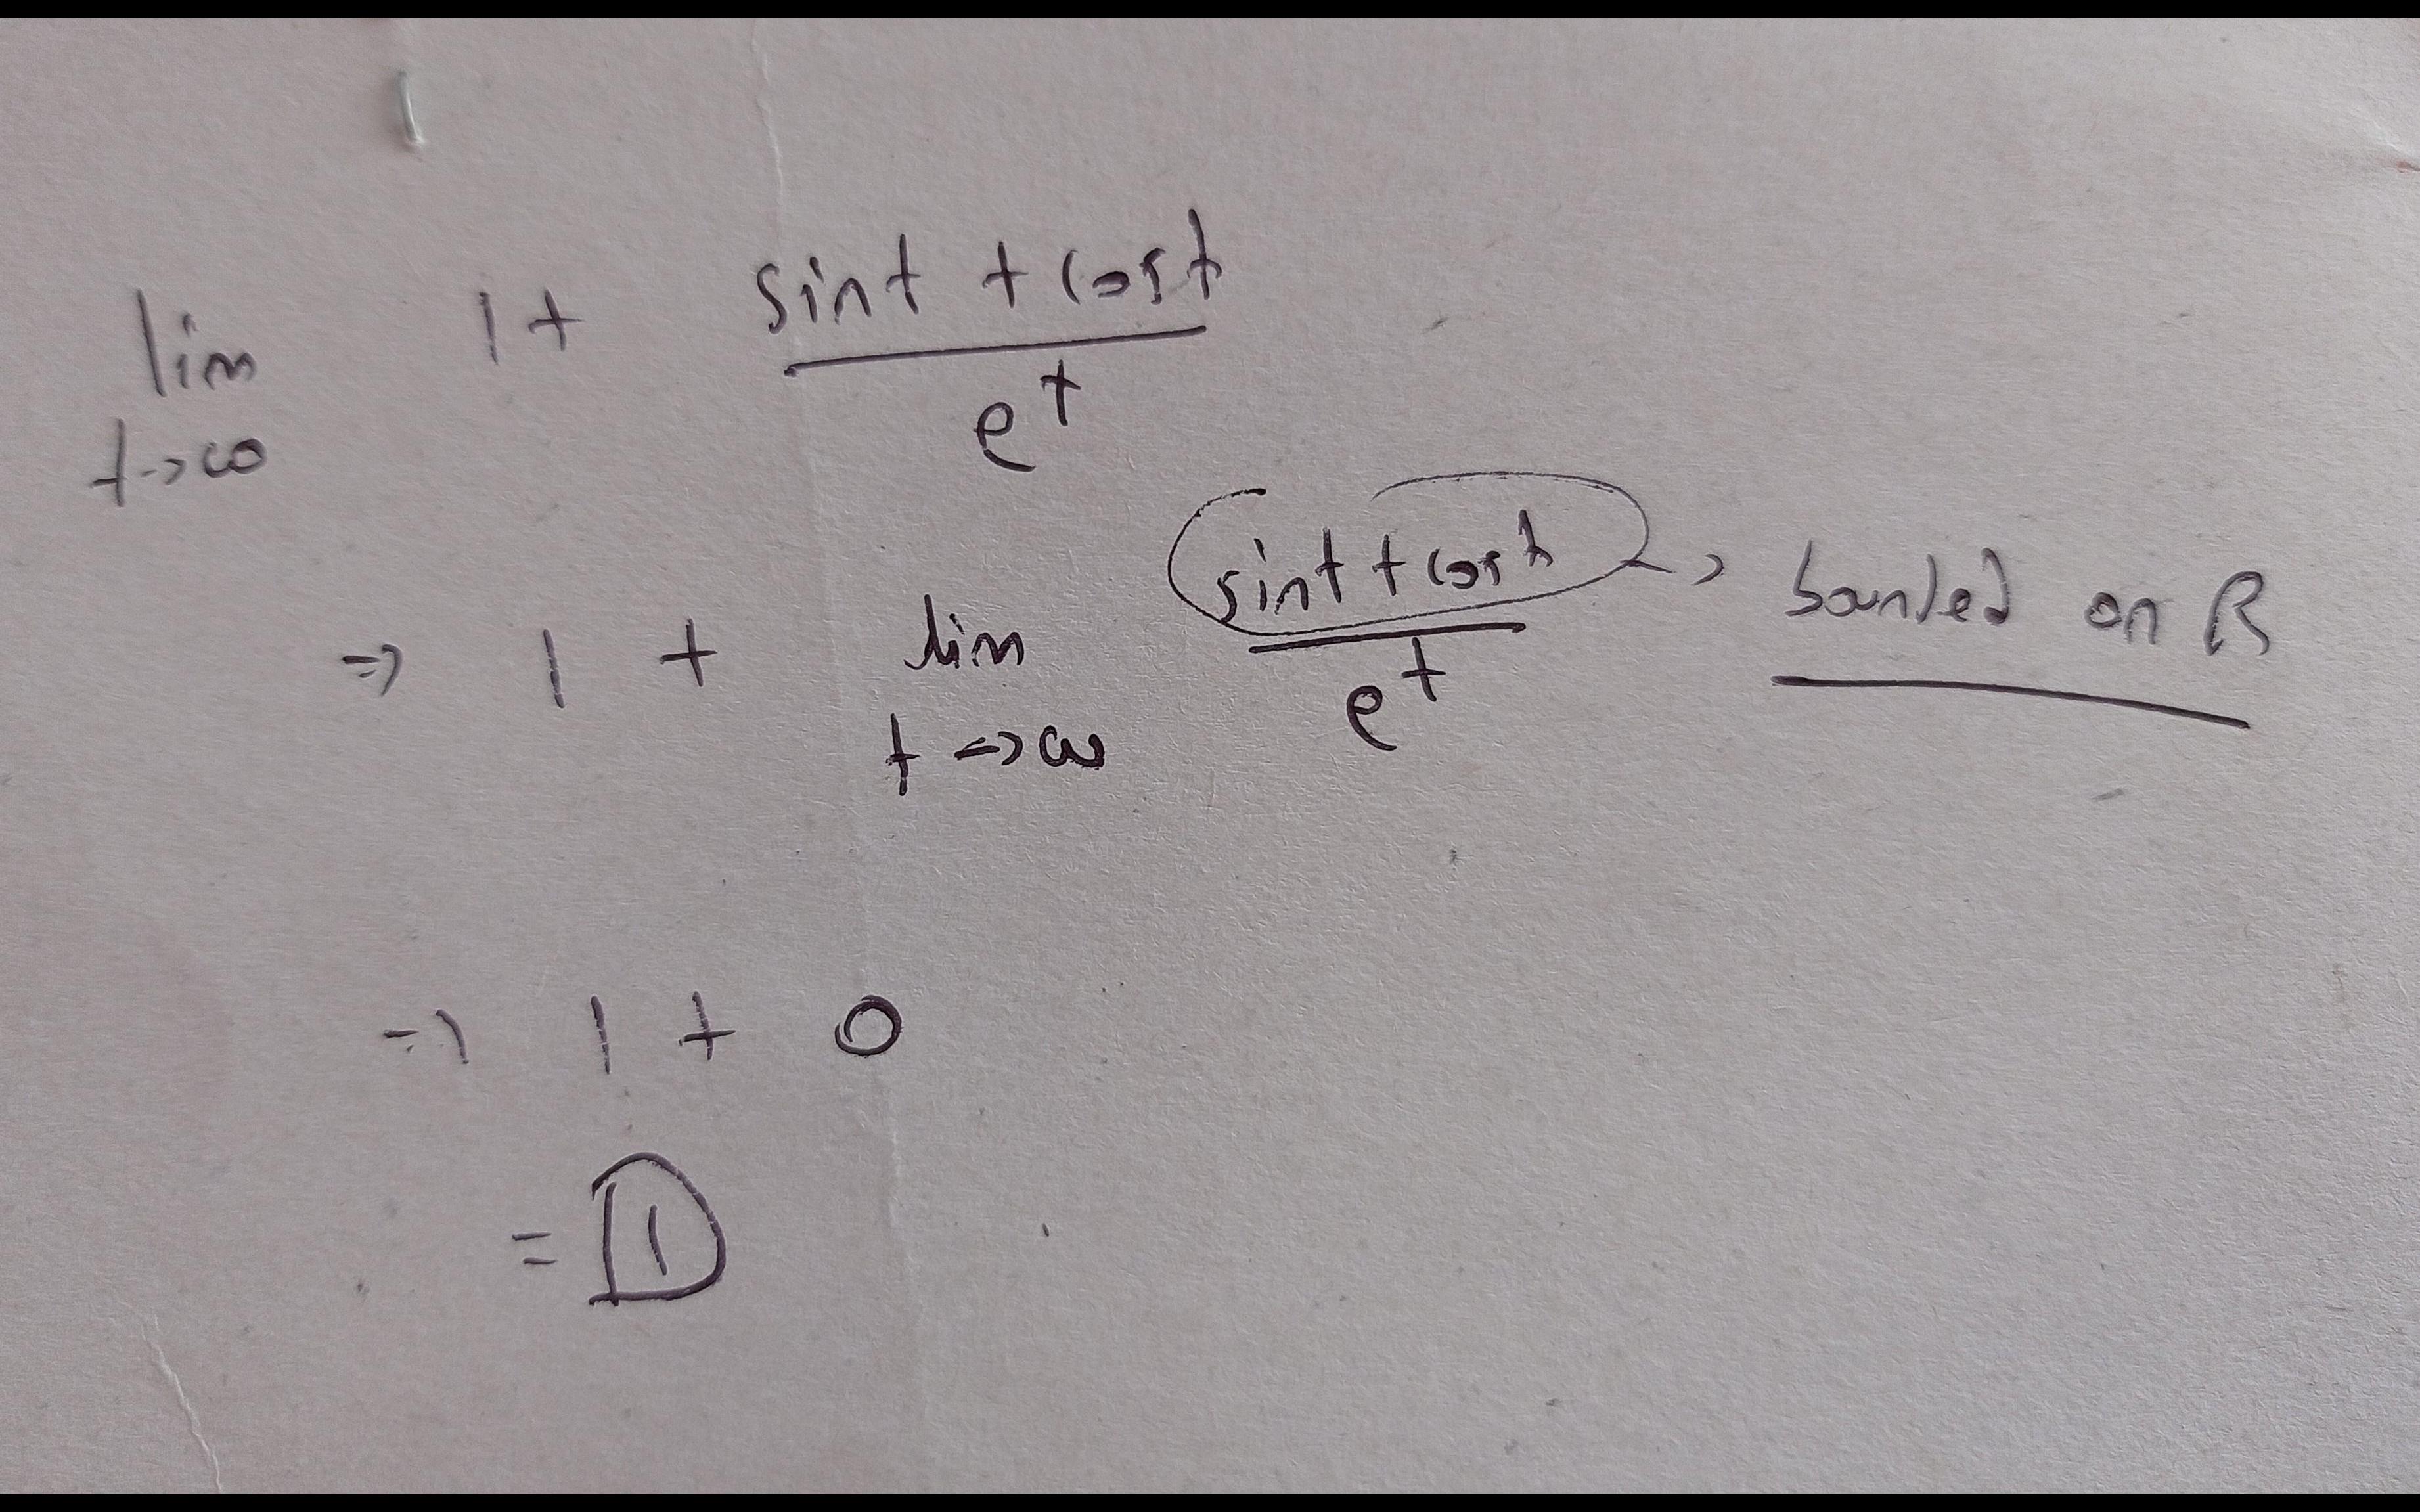 lim t→∞ 1 + (sint + cost)/e^t
⇒ 1 + lim t→∞ (sint + cost)/e^t → bounded on R
⇒ 1 + 0
= 1